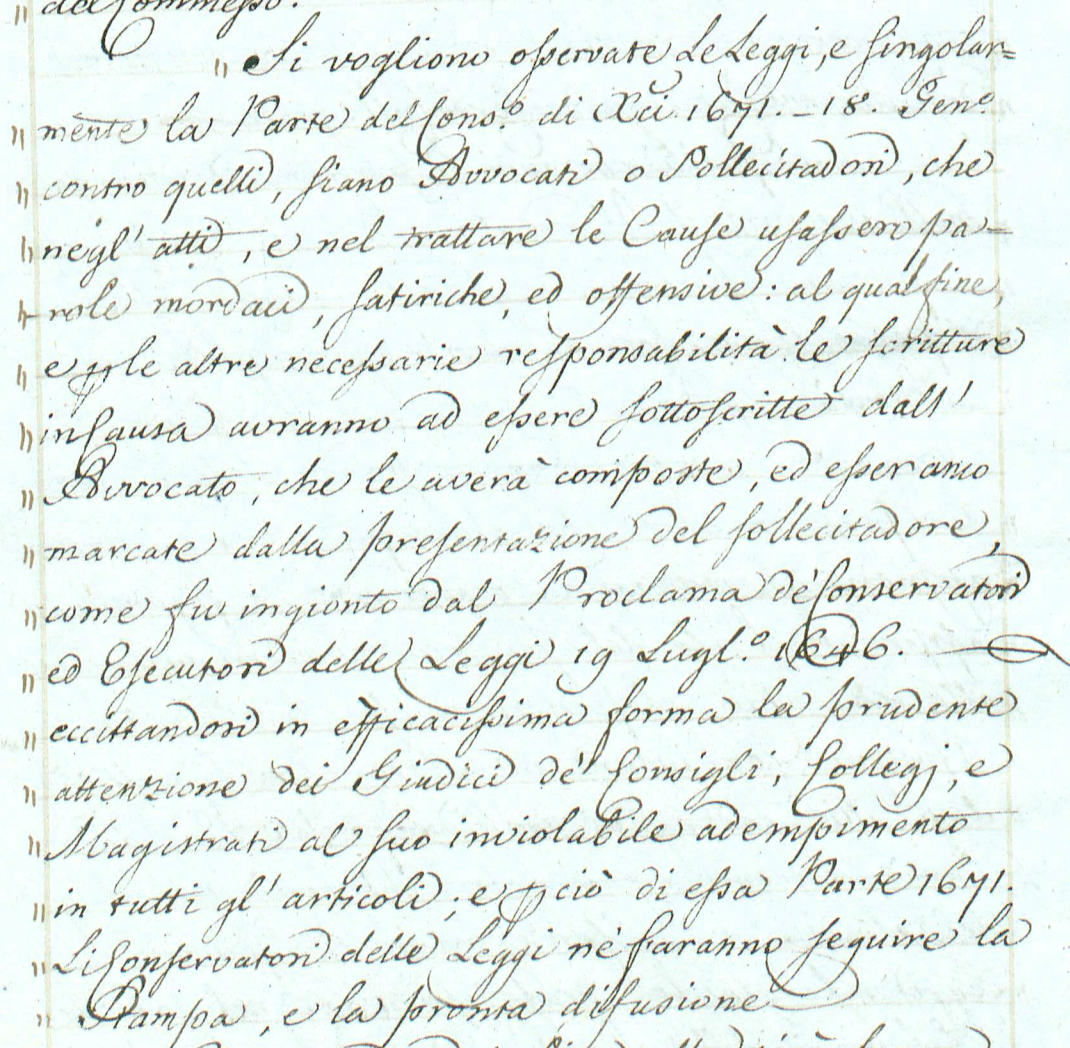 " del Commesso.
" Si vogliono osservate Le Leggi, e singolar=
" mente la Parte del Cons.º di Xci. 1671. – 18. Gen.º
" contro quelli, siano Avvocati o Sollecitadori, che
" negl' atti, e nel trattare le Cause usassero pa=
" role mordaci, satiriche, ed offensive: al qual fine,
" e ꝑ le altre necessarie responsabilità le scritture
" in Causa avranno ad essere sottoscritte dall'
" Avvocato, che le averà composte, ed esser anco
" marcate dalla presentazione del sollecitadore,
" come fu ingionto dal Proclama de' Conservatori
" ed Esecutori delle Leggi 19 Lugl.º 1646.
" eccittandosi in efficacissima forma la prudente
" attenzione dei Giudici de' Consigli, Collegj, e
" Magistrati al suo inviolabile adempimento
" in tutti gl' articoli; e ꝑciò di essa Parte 1671.
" Li Conservatori delle Leggi nè faranno seguire la
" Stampa, e la pronta difusione